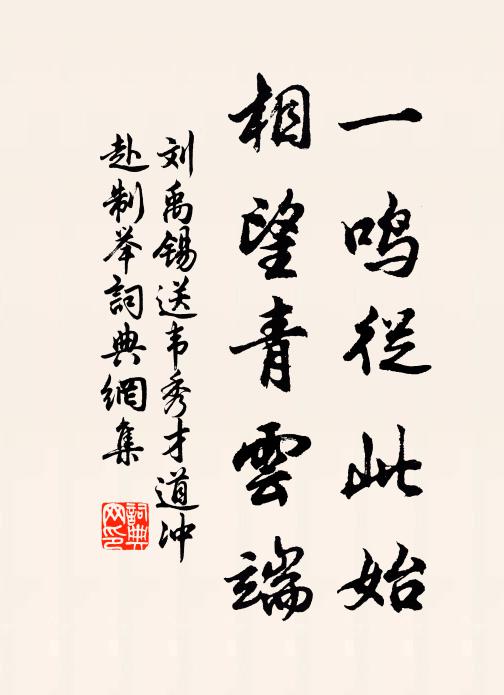 一鸣従此始
相望青雲端
刘禹锡送韦秀才道冲
赴制举詞典網集
詞典网印